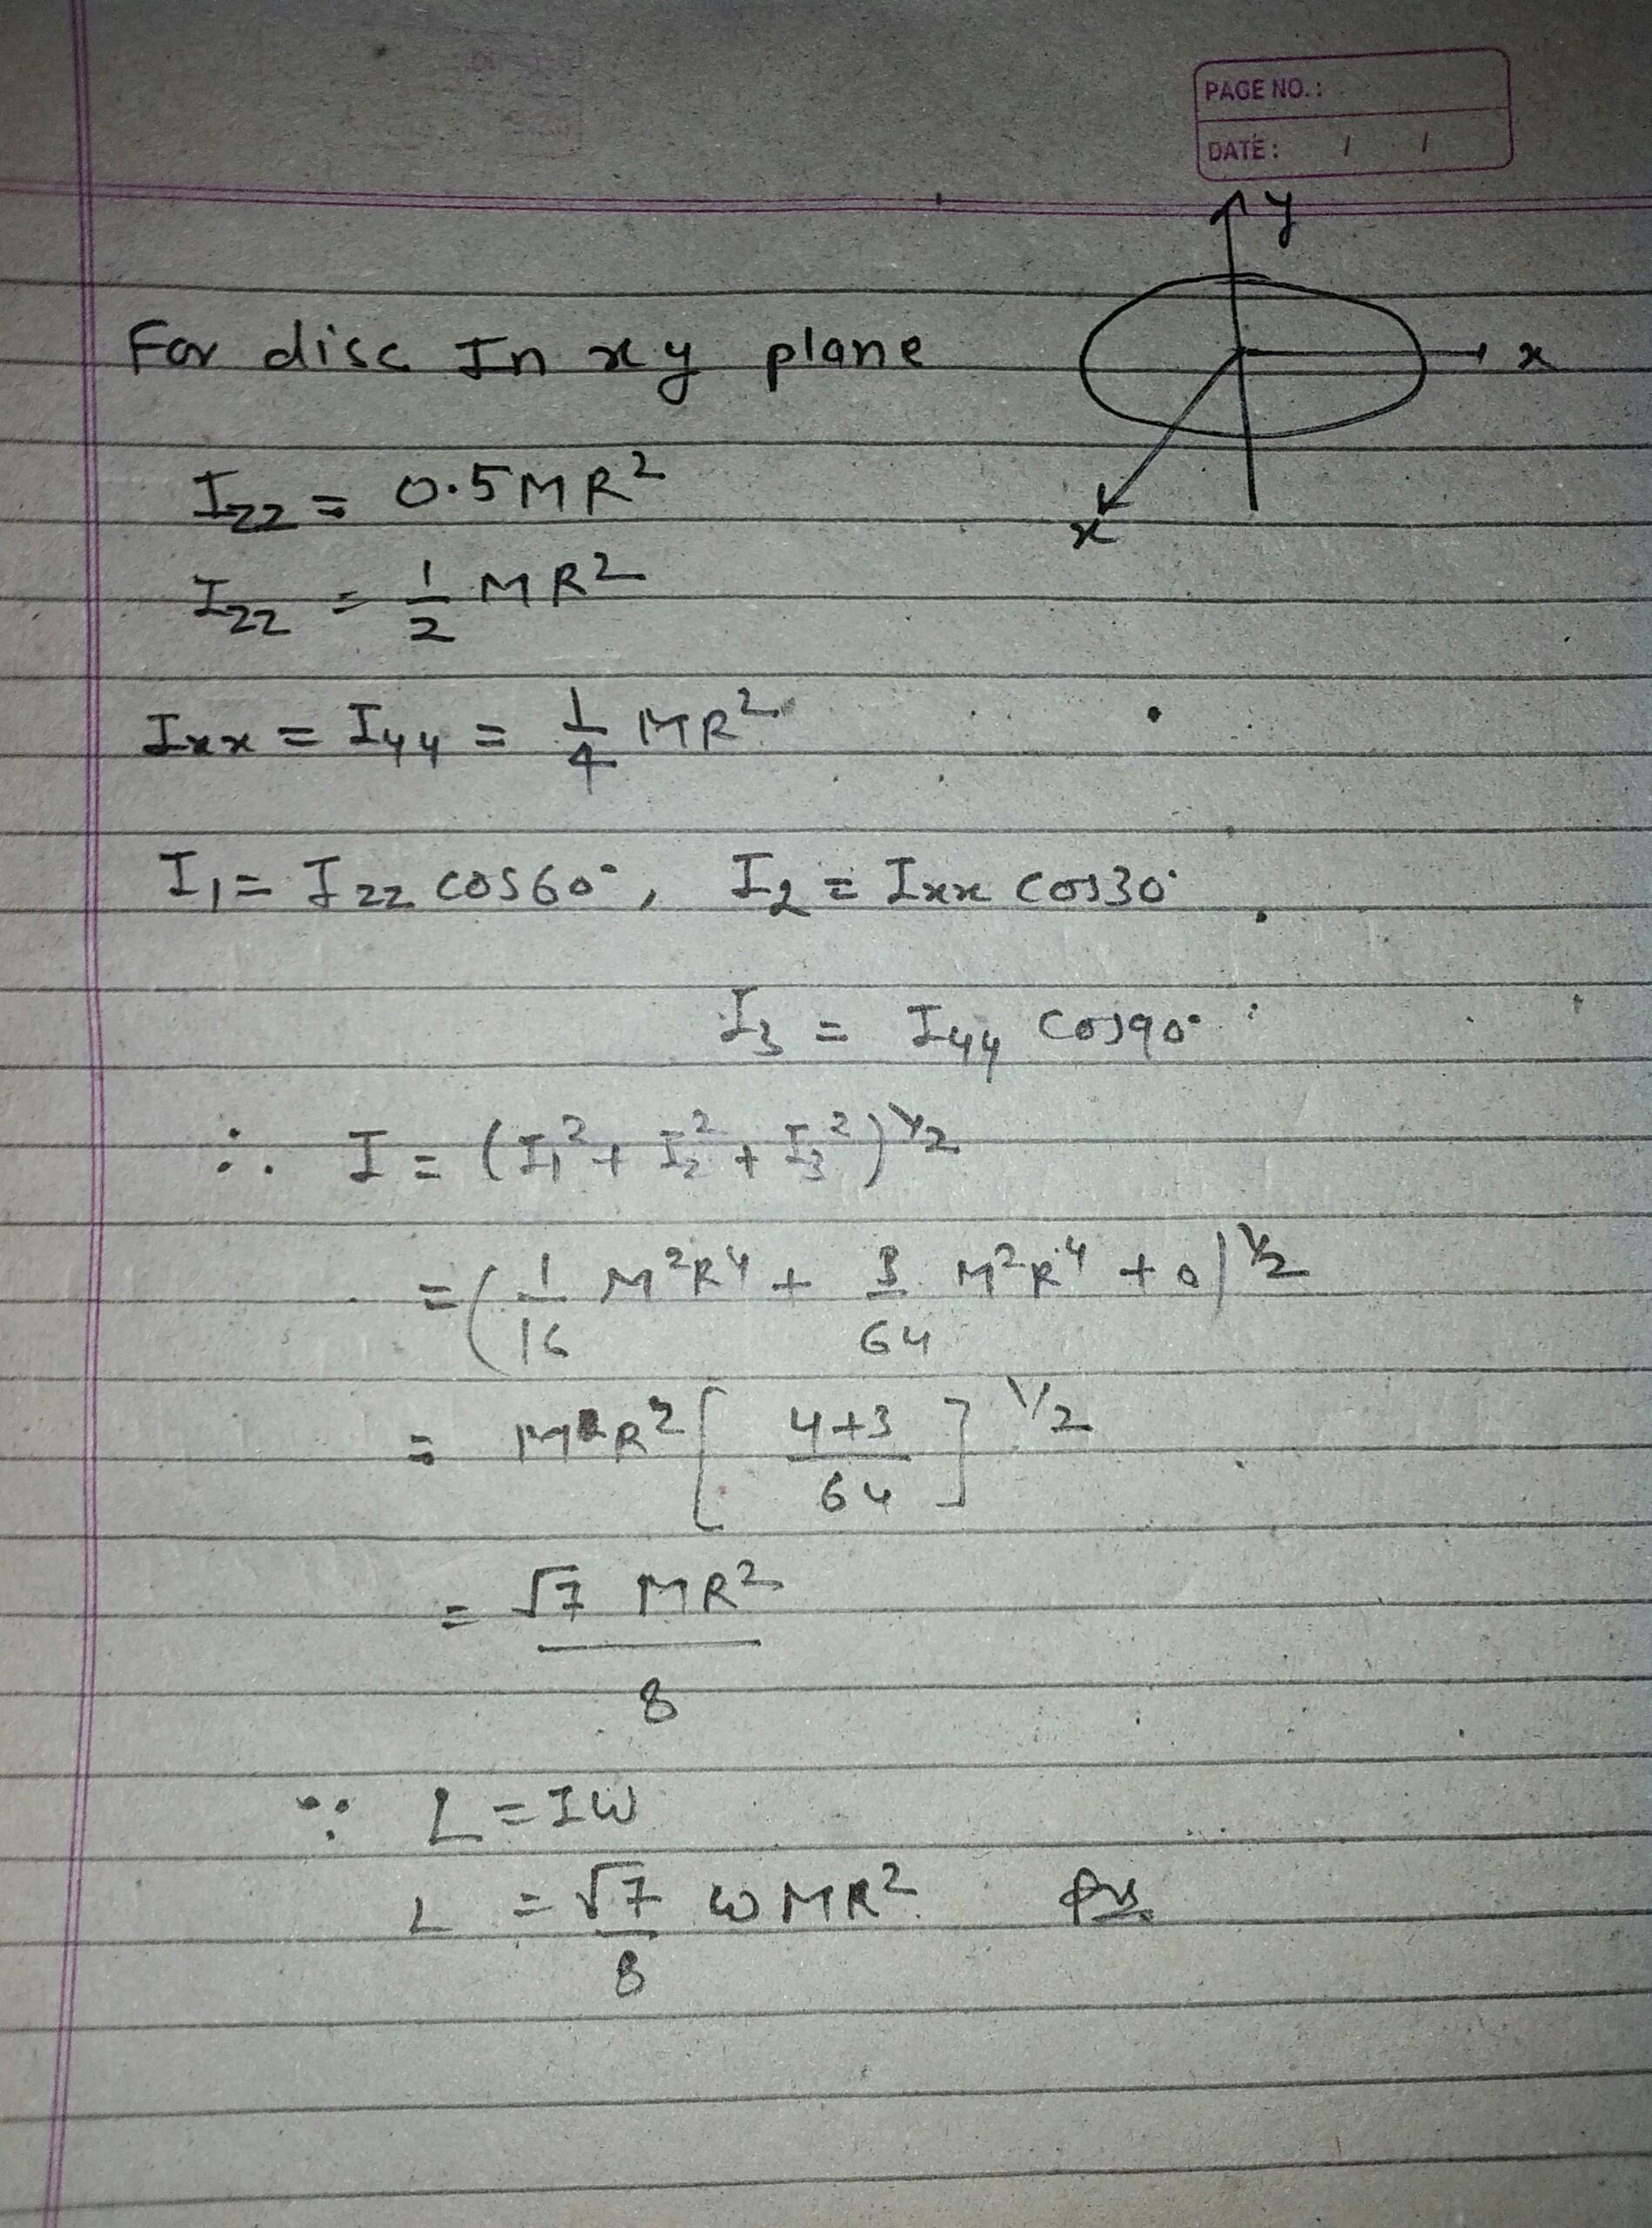 PAGE NO.:
DATE: / /
y
x
x
For disc In xy plane
Izz = 0.5MR²
Izz = 1/2 MR²
Ixx = Iyy = 1/4 MR²
I₁ = Izz cos60°, I₂ = Ixx cos30°
I₃ = Iyy cos90°
∴ I = (I₁² + I₂² + I₃²)^1/2
= (1/16 M²R⁴ + 3/64 M²R⁴ + 0)^1/2
= MR² [4+3/64]^1/2
= √7 MR²/8
∵ L = Iω
L = √7/8 ωMR²